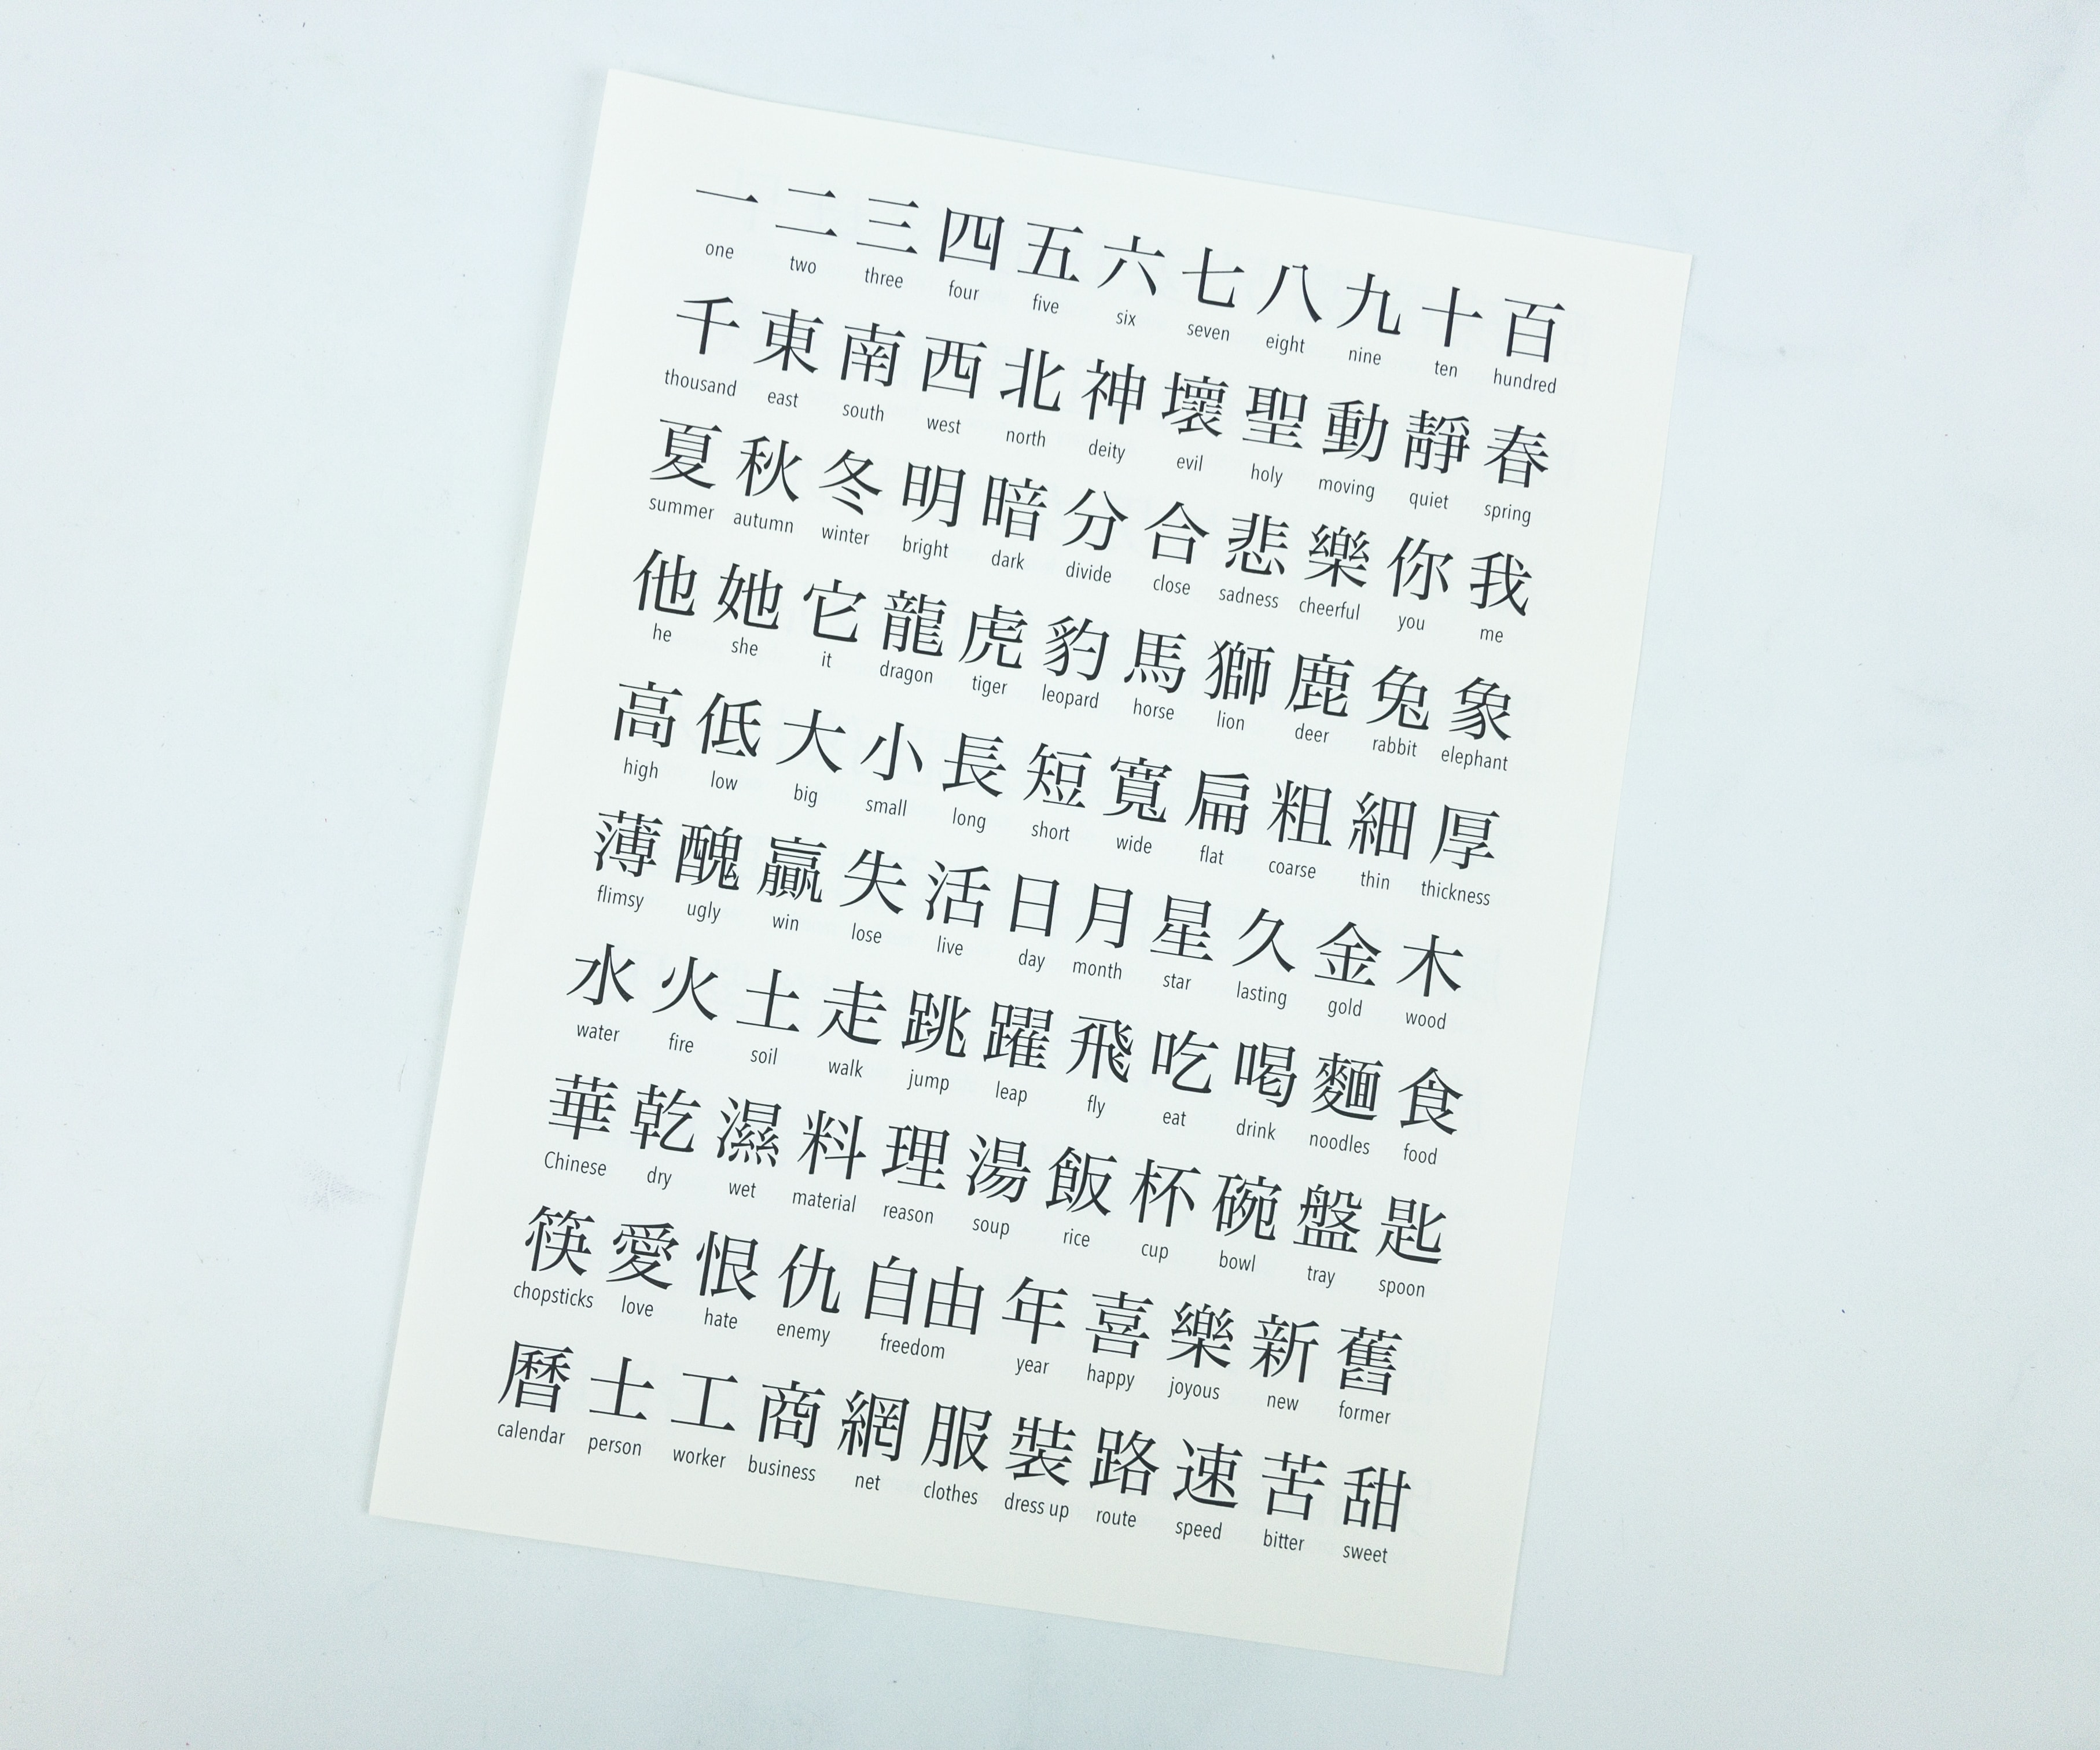 一 二 三 四 五 六 七 八 九 十 百
one two three four five six seven eight nine ten hundred
千 東 南 西 北 神 壞 聖 動 靜 春
thousand east south west north deity evil holy moving quiet spring
夏 秋 冬 明 暗 分 合 悲 樂 你 我
summer autumn winter bright dark divide close sadness cheerful you me
他 她 它 龍 虎 豹 馬 獅 鹿 兔 象
he she it dragon tiger leopard horse lion deer rabbit elephant
高 低 大 小 長 短 寬 扁 粗 細 厚
high low big small long short wide flat coarse thin thickness
薄 醜 贏 失 活 日 月 星 久 金 木
flimsy ugly win lose live day month star lasting gold wood
水 火 土 走 跳 躍 飛 吃 喝 麵 食
water fire soil walk jump leap fly eat drink noodles food
華 乾 濕 料 理 湯 飯 杯 碗 盤 匙
Chinese dry wet material reason soup rice cup bowl tray spoon
筷 愛 恨 仇 自由 年 喜 樂 新 舊
chopsticks love hate enemy freedom year happy joyous new former
曆 士 工 商 網 服 裝 路 速 苦 甜
calendar person worker business net clothes dress up route speed bitter sweet